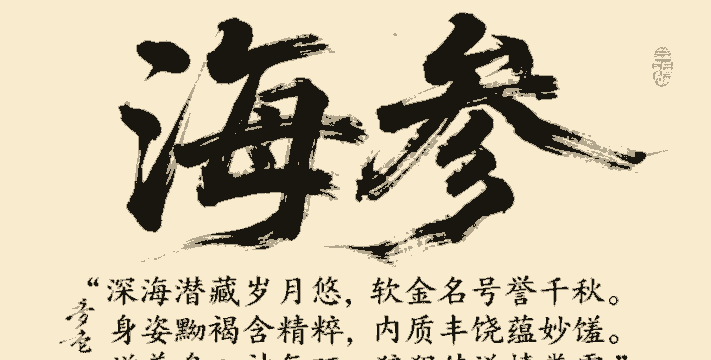 海参
“深海潜藏岁月悠，软金名号誉千秋。
身姿黝褐含精粹，内质丰饶蕴妙馐。